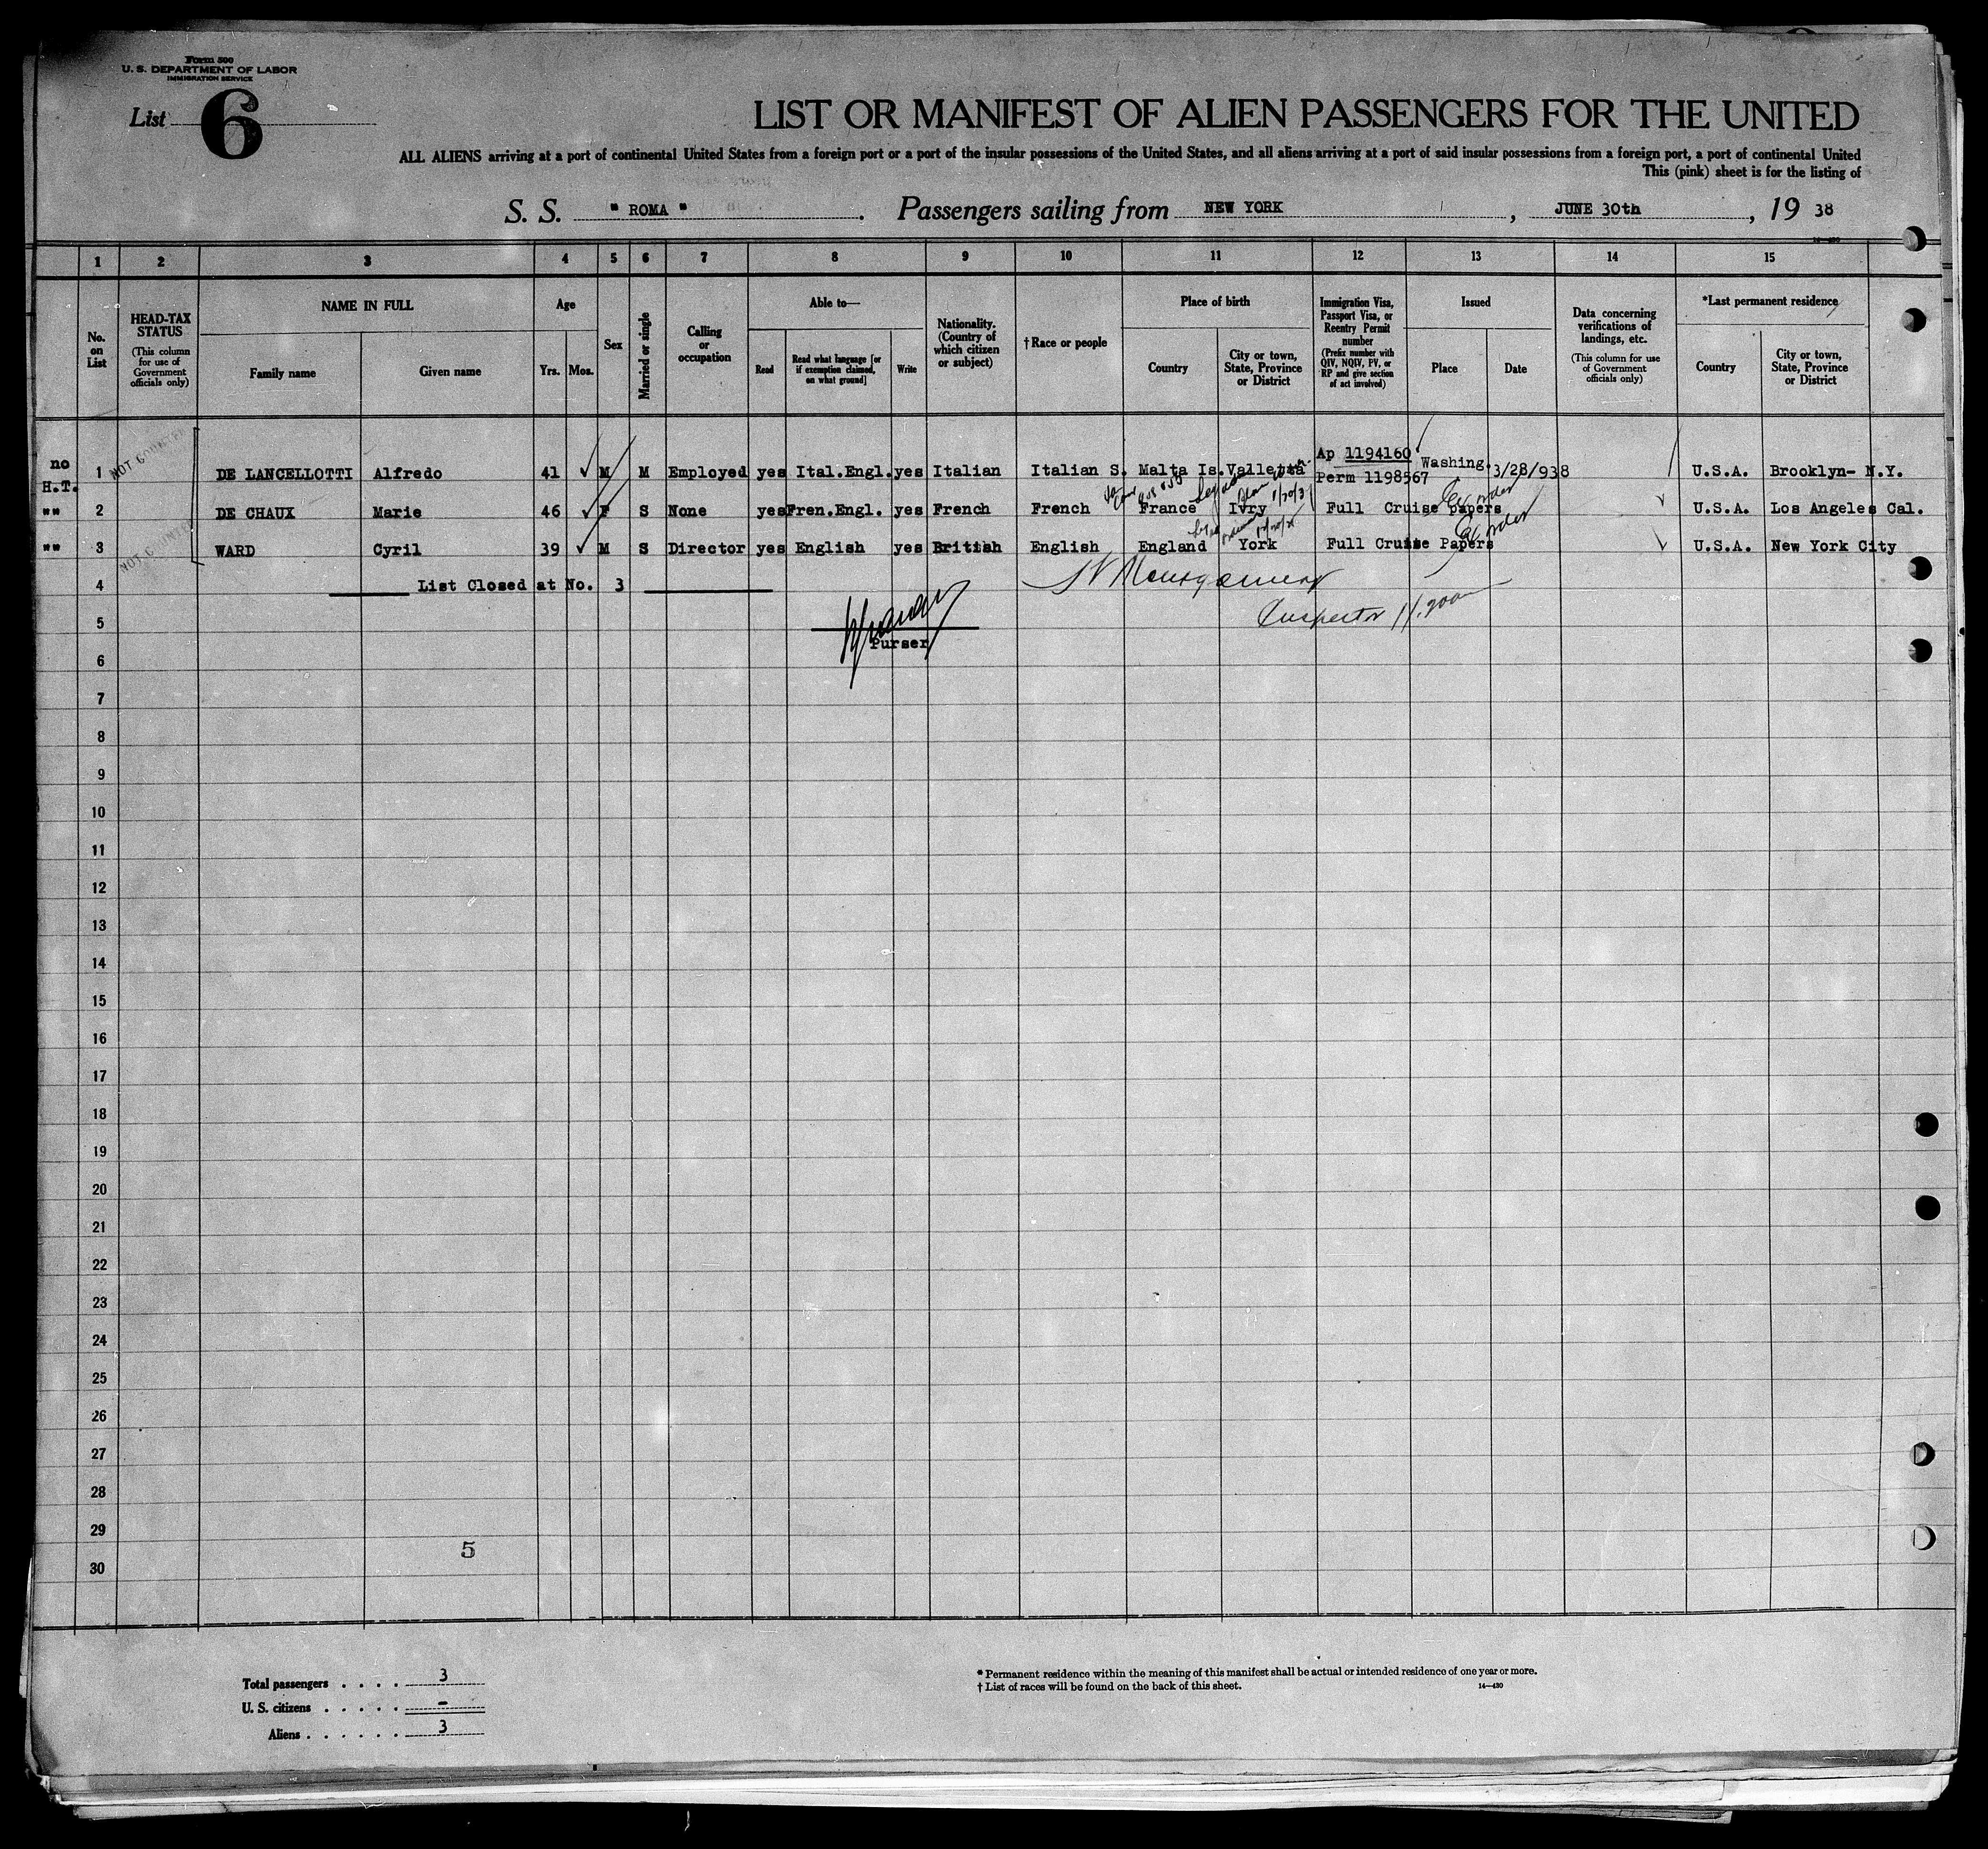 Form 500
U. S. DEPARTMENT OF LABOR
IMMIGRATION SERVICE
List 6
LIST OR MANIFEST OF ALIEN PASSENGERS FOR THE UNITED
ALL ALIENS arriving at a port of continental United States from a foreign port or a port of the insular possessions of the United States, and all aliens arriving at a port of said insular possessions from a foreign port, a port of continental United
This (pink) sheet is for the listing of
S. S. " ROMA " . Passengers sailing from NEW YORK , JUNE 30th , 19 38
14—430
1 2 3 4 5 6 7 8 9 10 11 12 13 14 15
No. on List
HEAD-TAX STATUS
(This column for use of Government officials only)
NAME IN FULL
Family name
Given name
Age
Yrs. Mos.
Sex
Married or single
Calling or occupation
Able to—
Read
Read what language [or if exemption claimed, on what ground]
Write
Nationality. (Country of which citizen or subject)
†Race or people
Place of birth
Country
City or town, State, Province or District
Immigration Visa, Passport Visa, or Reentry Permit number
(Prefix number with QIV, NQIV, PV, or RP and give section of act involved)
Issued
Place
Date
Data concerning verifications of landings, etc.
(This column for use of Government officials only)
*Last permanent residence
Country
City or town, State, Province or District
no H.T. 1 NOT COUNTED DE LANCELLOTTI Alfredo 41 ✓ M M Employed yes Ital.Engl. yes Italian Italian S. Malta Is. Valletta Ap 1194160 Perm 1198567 Washing. 3/28/938 U.S.A. Brooklyn- N.Y.
"" 2 DE CHAUX Marie 46 ✓ F S None yes Fren.Engl. yes French French France Ivry Full Cruise papers U.S.A. Los Angeles Cal.
"" 3 NOT COUNTED WARD Cyril 39 ✓ M S Director yes English yes British English England York Full Cruise Papers U.S.A. New York City
4 List Closed at No. 3
Montgomery
5 Inspector
Purser
6
7
8
9
10
11
12
13
14
15
16
17
18
19
20
21
22
23
24
25
26
27
28
29
5
30
Total passengers . . . . 3
U. S. citizens . . . . . -
Aliens . . . . . . 3
* Permanent residence within the meaning of this manifest shall be actual or intended residence of one year or more.
† List of races will be found on the back of this sheet.
14—430